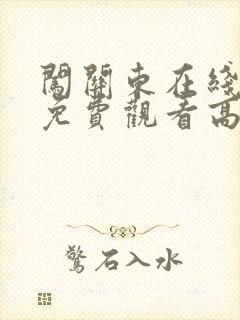 闖關東在綫
免費觀看高
驚石入水